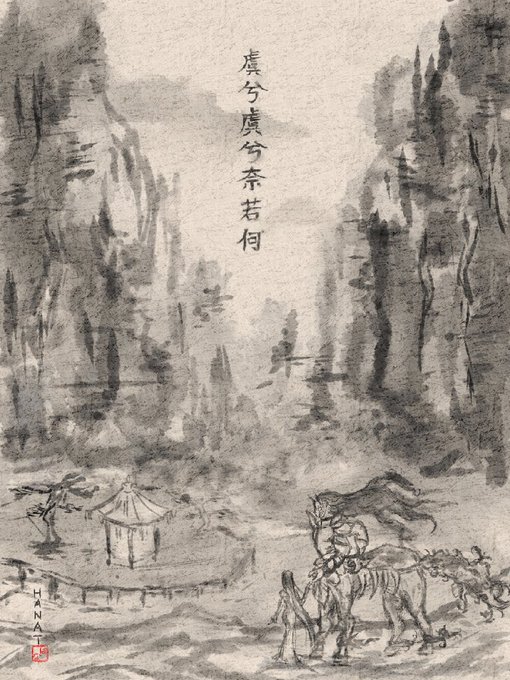 虞兮虞兮奈若何
HANAT